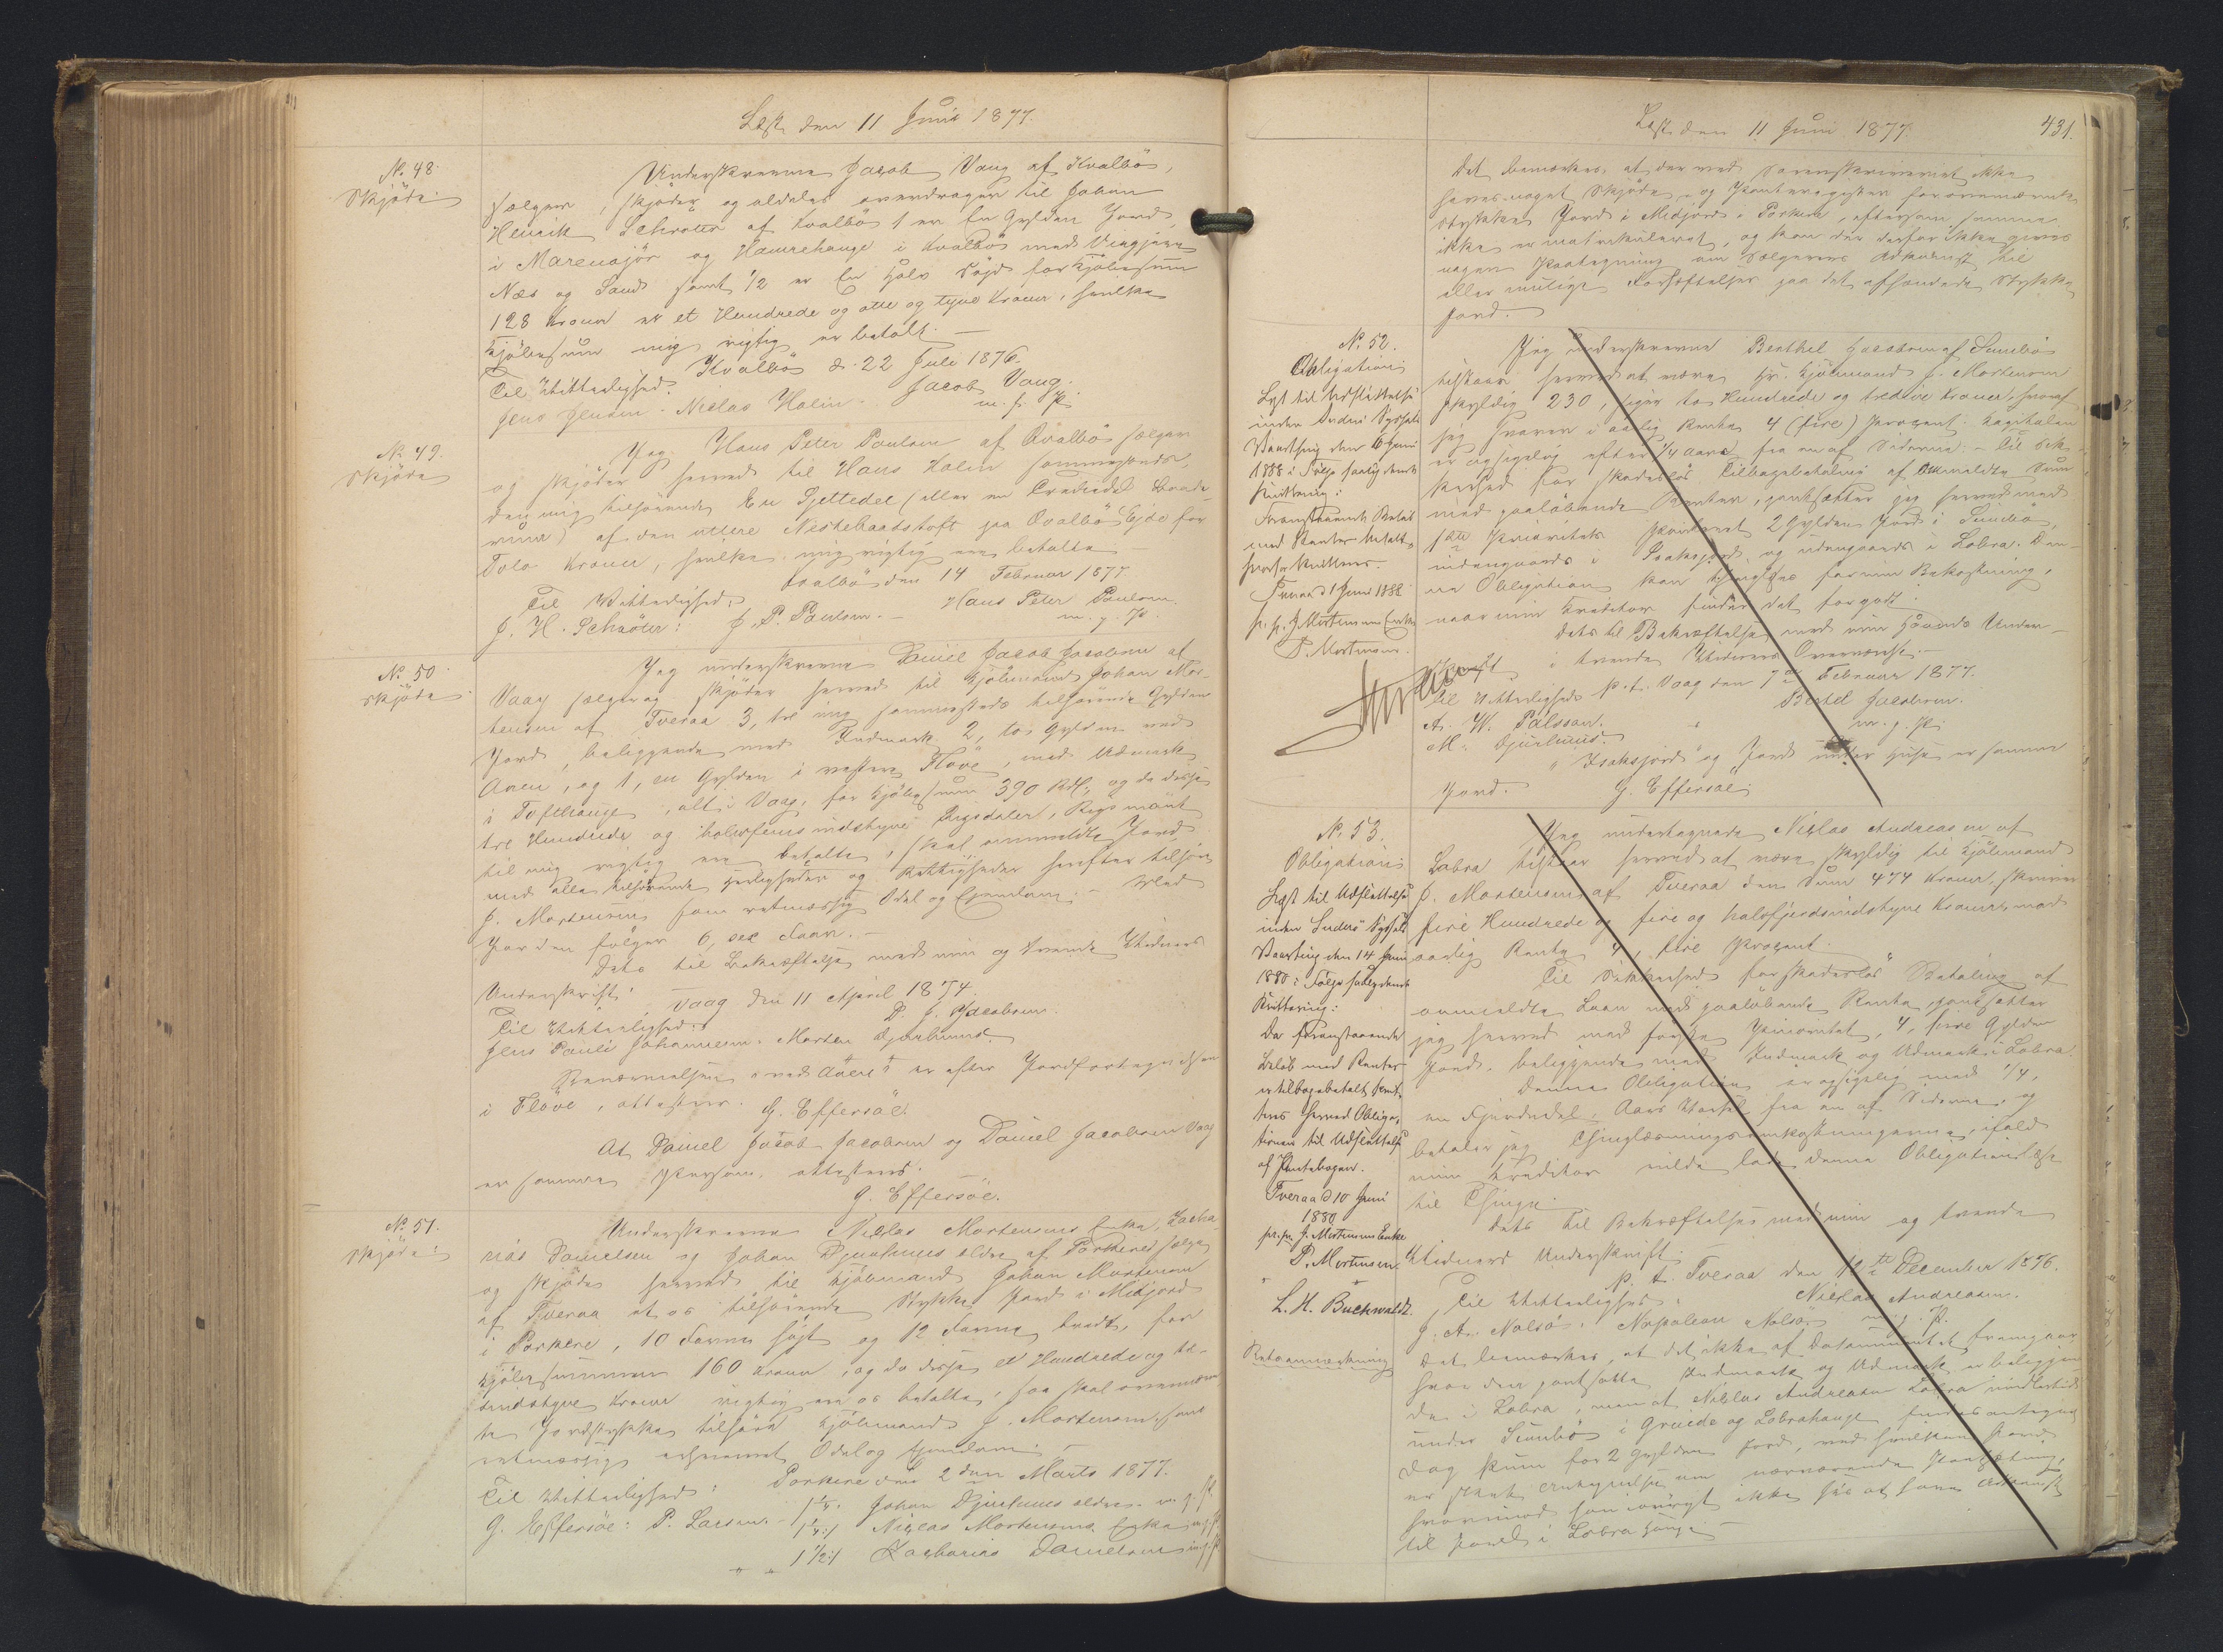 Læst den 11 Juni 1877.
No. 48.
Skjøde
Underskrevne Jacob Vang af Kvalbö,
sælger, skjøder og aldeles overdrager til Johan
Henrik Schrøter af Kvalbö 1 en Gylden Jord
i Marensjör og Hamrehauge i Kvalbö med
Næs og Sand samt 1/2 er en halv for Kjöbesum
128 Kroner er et Hundrede og otte og tyve Kroner, hvilke
Kjöbesum mig rigtig er betalt. —
Kvalbö d. 22 Juli 1876.
Til Vitterlighed:
Jacob Vang.
Jens Jensen. Niclas Holm.
m. f. P.
No. 49.
Skjøde
Jeg Hans Peter Poulsen af Qvalbö sælger
og skjøder herved til Hans Holm sammesteds,
den mig tilhørende En Sjettedel (eller en Trediedel Baade-
rum) af den yttere Nestebaadstoft paa Qvalbö Ejde for
Tolv Kroner, hvilke mig rigtig ere betalte —
Kvalbö den 14 Februar 1877
Til Vitterlighed:
Hans Peter Poulsen.
J. H. Schröter: J. P. Poulsen. —
m. p. P.
No. 50
Skjøde
Jeg underskrevne Daniel Jacob Jacobsen af
Vaag sælger og skjøder herved til Kjøbmand Johan Mor-
tensen af Tveraa 3, tre mig sammesteds tilhørende Gylden
Jord, beliggende med Indmark 2, to Gylden ved
Aaen, og 1, en Gylden i vestre Flöve, med Udmark
i Tofthauge, alt i Vaag, for Kjöbesum 390 Rd., og da disse
tre Hundrede og halvfemsindstyve Rigsdaler, Rigsmønt
til mig rigtig ere betalte, skal ommeldte Jord
med alle tilhørende Herligheder og Rettigheder herefter tilhøre
J. Mortensen som retmæssig Odel og Ejendom. — Med
Jorden følger 6, sex Faar. —
Dets til Bekræftelse med min og tvende Vidners
Underskrift.
Vaag den 11 April 1874.
Til Vitterlighed:
D. J. Jacobsen.
Jens Pauli Johannesen. Morten Djurhuus.
Benævnelsen „ved Aaen" er efter Jordfortegnelsen
i Flöve, attesteres. G. Effersöe.
At Daniel Jacob Jacobsen og Daniel Jacobsen Vaag
er samme Person, attesteres.
G. Effersöe.
No. 51.
Skjøde:
Underskrevne Niclas Mortensens Enke, Zacha-
rias Danielsen og Johan Djurhuus ældre af Porkere sælge
og skjøde herved til Kjøbmand Johan Mortensen
af Tveraa et os tilhørende Stykke Jord i Midjord
i Porkere, 10 Favne højt og 12 Favne bredt, for
Kjöbesummen 160 Kroner, og da disse et Hundrede og tre-
sindstyve Kroner rigtig ere os betalte, saa skal ovennævn-
te Jordstykke tilhøre Kjøbmand J. Mortensen, som
retmæssig erhvervet Odel og Ejendom. —
Porkere den 2den Marts 1877.
Til Vitterlighed:
G. Effersöe: P. Larsen. —
Johan Djurhuus ældre. m. p. P.
Niclas Mortensens Enke m. f. P.
Zacharias Danielsen m. f. P.
Læst den 11 Juni 1877.
431.
Det bemærkes, at der ved Sorenskriveriet ikke
haves noget Skjøde- og Panteregister for ovennævnte
Stykke Jord i Midjord i Porkere, eftersom samme
ikke er matrikuleret, og kan der derfor ikke gives
nogen Paategning om Sælgerens Adkomst til
eller mulige Forhæftelser paa det afhændede Stykke
Jord.
No. 52.
Obligation
Lyst til Udslettelse
inden Suderø Syssels
Vaarthing den 6 Juni
1888 i Følge saalydende
Kvittering:
Foranstaaende Beløb
med Renter betalt,
hvorfor kvitteres.
Tveraa d 1 Juni 1888
p. p. J. Mortensens Enke
P. Mortensen.
Jeg underskrevne Berthel Jacobsen af Sumbö
tilstaar herved at være Hr. Kjøbmand J. Mortensen
skyldig 230, siger to Hundrede og tredive Kroner, hvoraf
jeg svarer i aarlig Rente 4 (fire) Procent. Kapitalen
er opsigelig efter 1/4 Aars fra en af Siderne. — Til Sik-
kerhed for skadeslös Tilbagebetaling af anmeldte Sum
med paaløbende Renter, pantsætter jeg herved med
1ste Prioritets Panteret 2 Gylden Jord i Sumbö,
indengaards i Isaksjord og udengaards i Lobra. Den-
ne Obligation kan thinglæses for min Bekostning,
naar min Kreditor finder det for godt.
Dets til Bekræftelse med min Haands Under-
skrift i tvende Vidners Overværelse. —
p. t. Vaag den 7de Februar 1877.
Til Vitterlighed:
Berthel Jacobsen.
A. W. Pálsson.
m. p. P.
M. Djurhuus.
„Isaksjord" og Jord under Huse er samme
Jord.
G. Effersöe.
No. 53.
Obligation
Lyst til Udslettelse
inden Suderö Syssels
Vaarting den 14 Juni
1880 i Følge saalydende
Kvittering:
Da foranstaaende
Beløb med Renter
er tilbagebetalt, kvit-
teres herved Obliga-
tionen til Udslettelse
af Pantebogen.
Tveraa d 10 Juni
1880
pr. pr. J. Mortensens Enke
P. Mortensen
L. H. Buchwaldt.
Jeg undertegnede Niclas Andreasen af
Lobra tilstaar herved at være skyldig til Kjøbmand
J. Mortensen af Tveraa den Sum 474 Kroner, skriver
fire Hundrede og fire og halvfjerdsindstyve Kroner, mod
aarlig Rente 4, fire Procent.
Til Sikkerhed for skadeslös Betaling af
ommeldte Laan med paaløbende Rente, pantsætter
jeg herved med første Prioritet, 4, fire Gylden
Jord, beliggende med Indmark og Udmark i Lobra.
Denne Obligation er opsigelig med 1/4,
en Fjerdedel, Aars Varsel fra en af Siderne, og
betaler jeg Thinglæsningsomkostningerne, ifald
min Kreditor vilde lade denne Obligation læse
til Thinge.
Dets til Bekræftelse med min og tvende
Vidners Underskrift.
p. t. Tveraa den 11te December 1876.
Til Vitterlighed:
Niclas Andreasen.
J. A. Nolsö. Napoleon Nolsöe
m. p. P.
Retsanmærkning
Det bemærkes, at det ikke af Dokumentet fremgaar
hvor den pantsatte Indmark og Udmark er beliggen-
de i Lobra, men at Niclas Andreasen Lobra
under Sumbö i Gruide og Lobrahauge findes antegnet
dog kun for 2 Gylden Jord, med hvilken Jord
hvorimod han iøvrigt ikke ses at have Adkomst
til Jord i Lobrahauge —